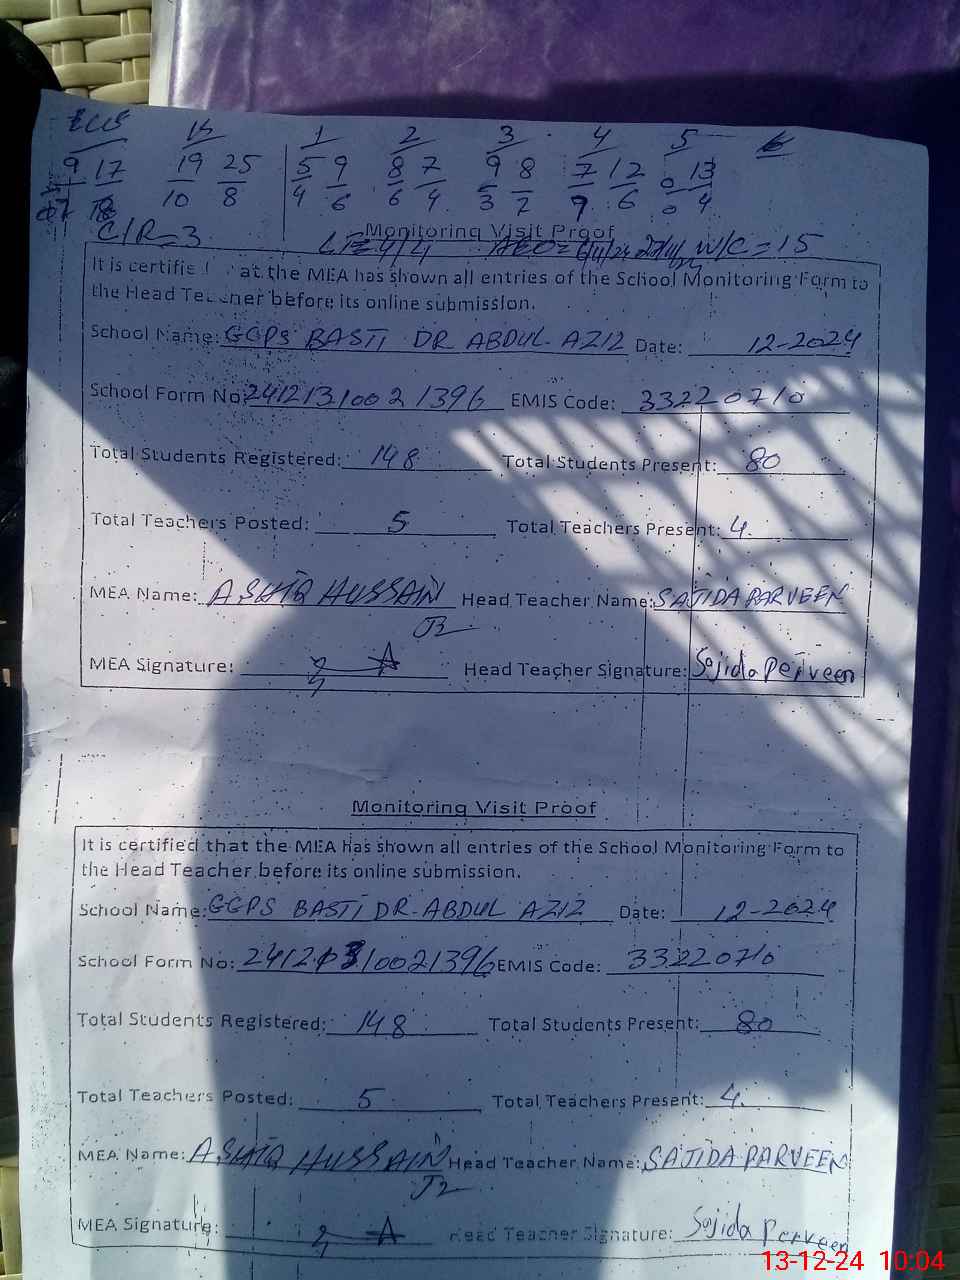 ECCE K 1 2 3 4 5 6
9 17 19 25 5 9 8 7 9 8 7 12 0 13
10 8 4 6 6 4 3 7 9 6 0 4
Monitoring Visit Proof
C/R=3 4/4 W/C=15
It is certified that the MEA has shown all entries of the School Monitoring Form to
the Head Teacher before its online submission.
School Name: GGPS BASTI DR ABDUL AZIZ Date: 12-2024
School Form No: 2412131002 1396 EMIS Code: 33220710
Total Students Registered: 148 Total Students Present: 80
Total Teachers Posted: 5 Total Teachers Present: 4.
MEA Name: ASHIQ HUSSAIN Head Teacher Name: SAJIDA PARVEEN
MEA Signature: Head Teacher Signature: Sajida Perveen
Monitoring Visit Proof
It is certified that the MEA has shown all entries of the School Monitoring Form to
the Head Teacher before its online submission.
School Name: GGPS BASTI DR. ABDUL AZIZ Date: 12-2024
School Form No: 24121310021396 EMIS Code: 33220710
Total Students Registered: 148 Total Students Present: 80
Total Teachers Posted: 5 Total Teachers Present: 4.
MEA Name: ASHIQ HUSSAIN Head Teacher Name: SAJIDA PARVEEN
MEA Signature: Head Teacher Signature: Sajida Perveen
13-12-24 10:04